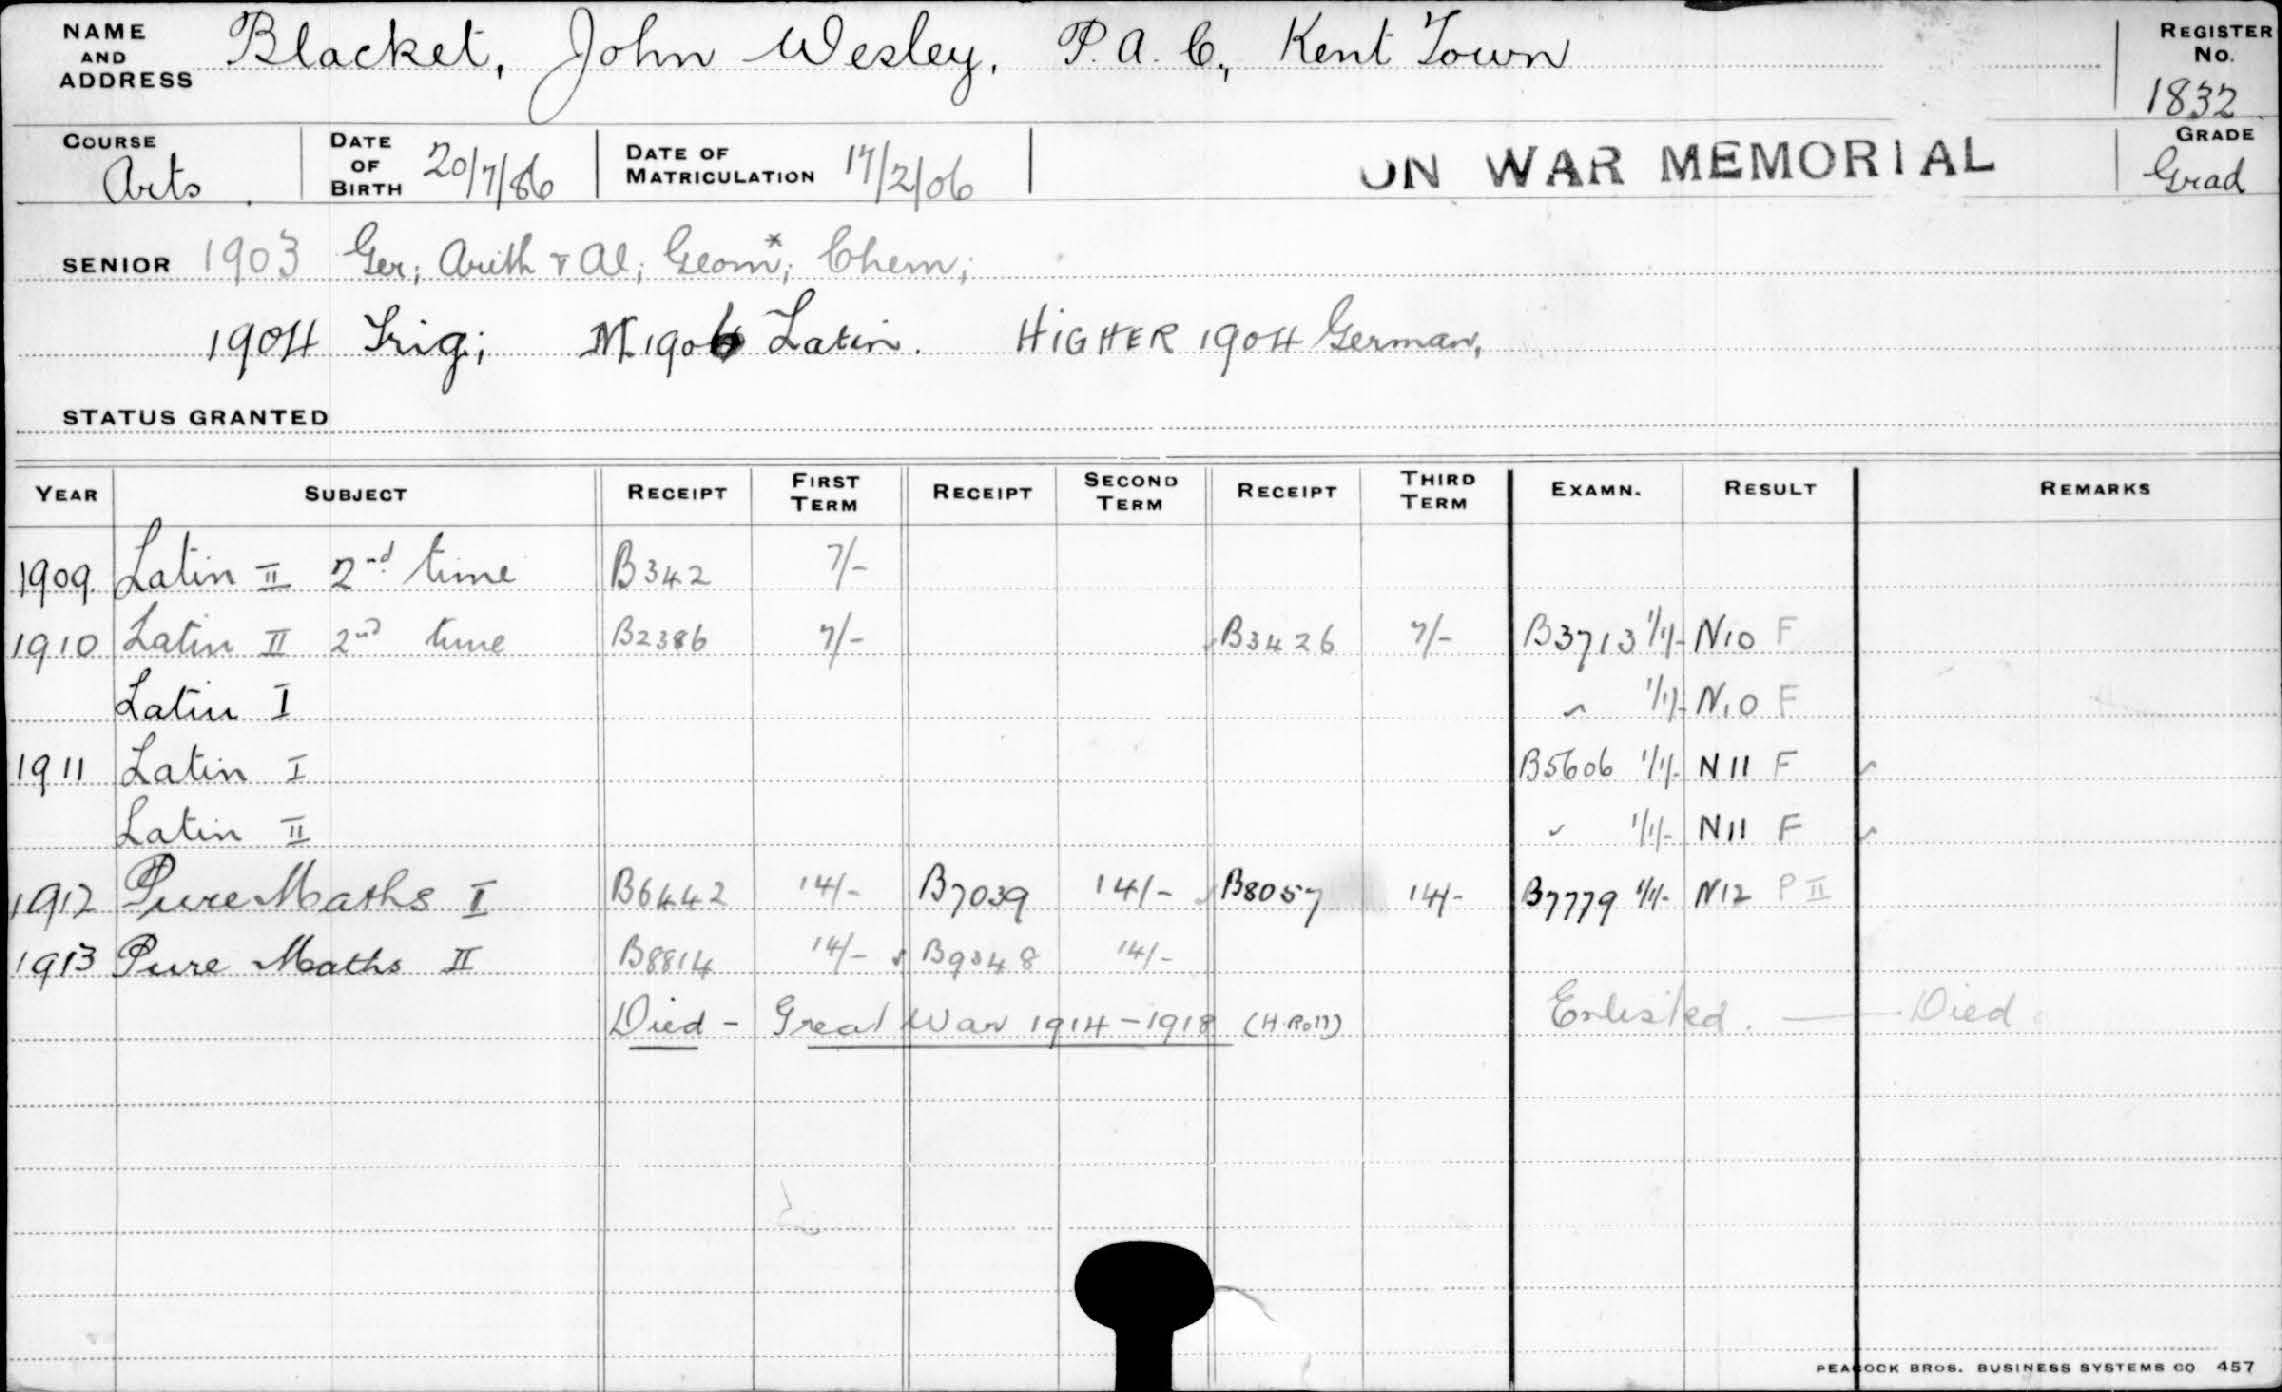 NAME AND ADDRESS Blacket, John Wesley, P.A.C., Kent Town REGISTER No. 1832
COURSE Arts DATE OF BIRTH 20/7/86 DATE OF MATRICULATION 17/2/06 ON WAR MEMORIAL GRADE Grad
SENIOR 1903 Ger; Arith & Al; Geom*; Chem;
1904 Trig; M1906 Latin. HIGHER 1904 German,
STATUS GRANTED
YEAR SUBJECT RECEIPT FIRST TERM RECEIPT SECOND TERM RECEIPT THIRD TERM EXAMN. RESULT REMARKS
1909 Latin II 2nd time B342 7/-
1910 Latin II 2nd time B2386 7/- B3426 7/- B3713 1/1/- N10 F
Latin I 1/1/- N10 F
1911 Latin I B5606 1/1/- N11 F ✓
Latin II ✓ 1/1/- N11 F ✓
1912 Pure Maths I B6442 14/- B7039 14/- B8057 14/- B7779 1/1/- N12 P II
1913 Pure Maths II B8814 14/- B9348 14/-
Died - Great War 1914-1918 (H. Roll) Enlisted. — Died
PEACOCK BROS. BUSINESS SYSTEMS CO 457